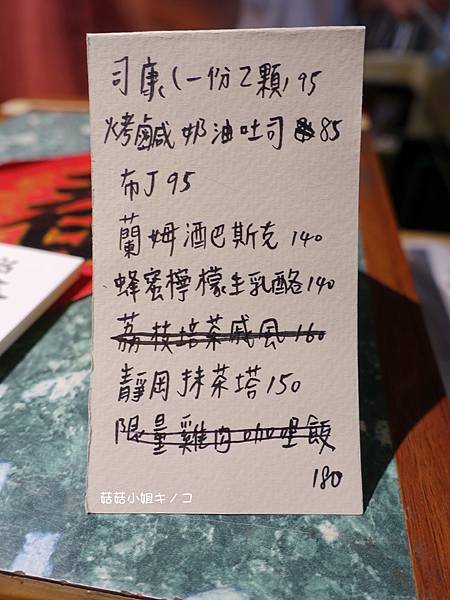 司康(一份2顆)95
烤鹹奶油吐司 85
布丁95
蘭姆酒巴斯克 140
蜂蜜檸檬生乳酪140
荔枝焙茶戚風160
靜岡抹茶塔150
限量雞肉咖哩飯
180
菇菇小姐キノコ